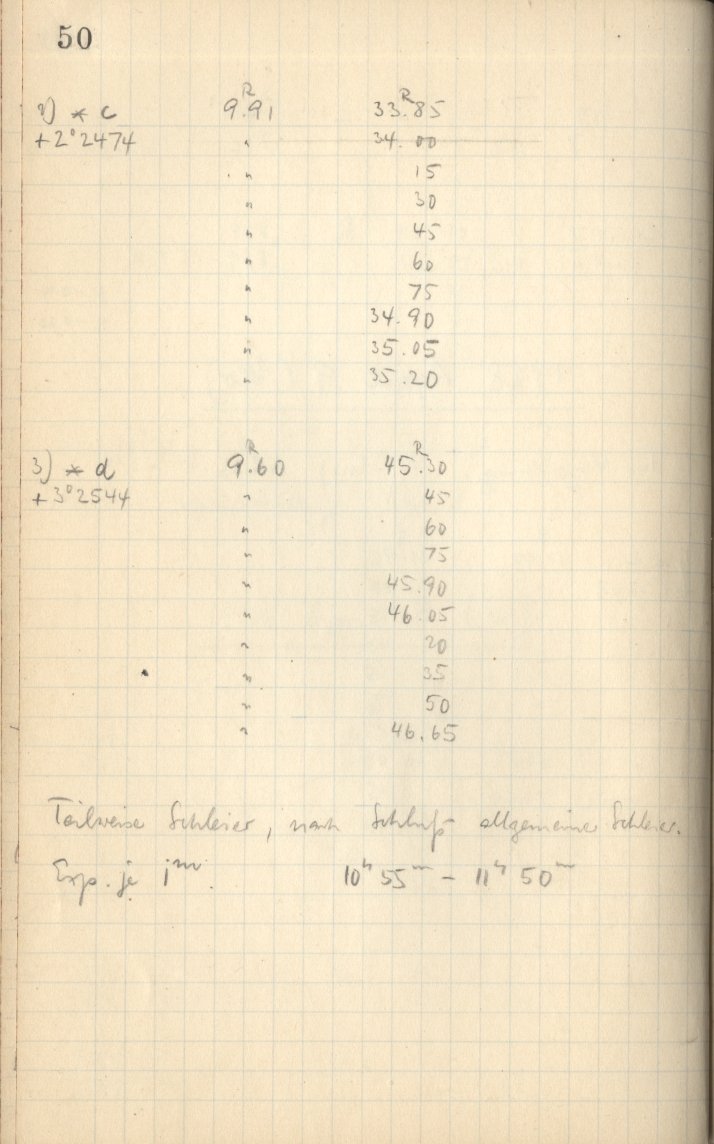 50
2) * c 9.ᴿ91 33.ᴿ85
+2°2474 " 34.00
" 15
" 30
" 45
" 60
" 75
" 34.90
" 35.05
" 35.20
3) * d 9.ᴿ60 45.ᴿ30
+3°2544 " 45
" 60
" 75
" 45.90
" 46.05
" 20
" 35
" 50
" 46.65
Teilweise Schleier, nach Schluß allgemeine Schleier.
Exp. je 1ᵐ. 10ʰ 55ᵐ – 11ʰ 50ᵐ